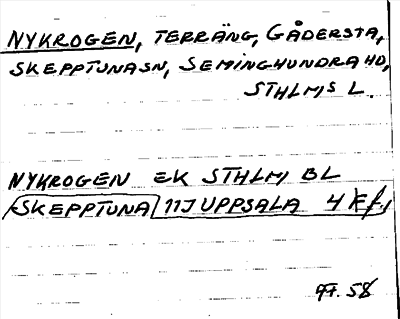 NYKROGEN, TERRÄNG, GÅDERSTA,
SKEPPTUNA SN, SEMINGHUNDRA HD,
STHLMS L.
NYKROGEN EK STHLM BL
SKEPPTUNA 11J UPPSALA 4
58